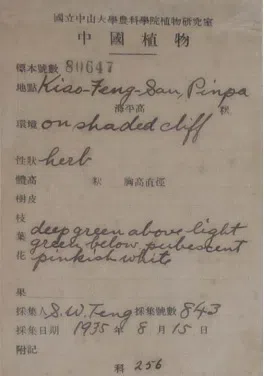 國立中山大學農科學院植物研究室
中國植物
標本號數 80647
地點 Kiao-Feng-San, Pinpa
海平高 呎
環境 on shaded cliff
性狀 herb
體高 呎 胸高直徑
樹皮
枝
葉 deep green above, light green below, pubescent
花 pinkish white
果
採集人 S.W. Teng 採集號數 843
採集日期 1935 年 8 月 15 日
附記
科 256